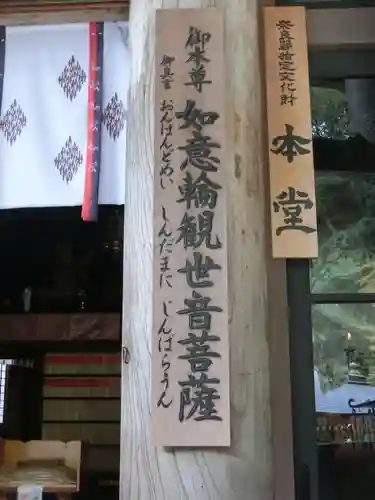 奈良県指定文化財
本堂
御本尊
如意輪観世音菩薩
御真言
おんはんどめい しんだまに じんばらうん